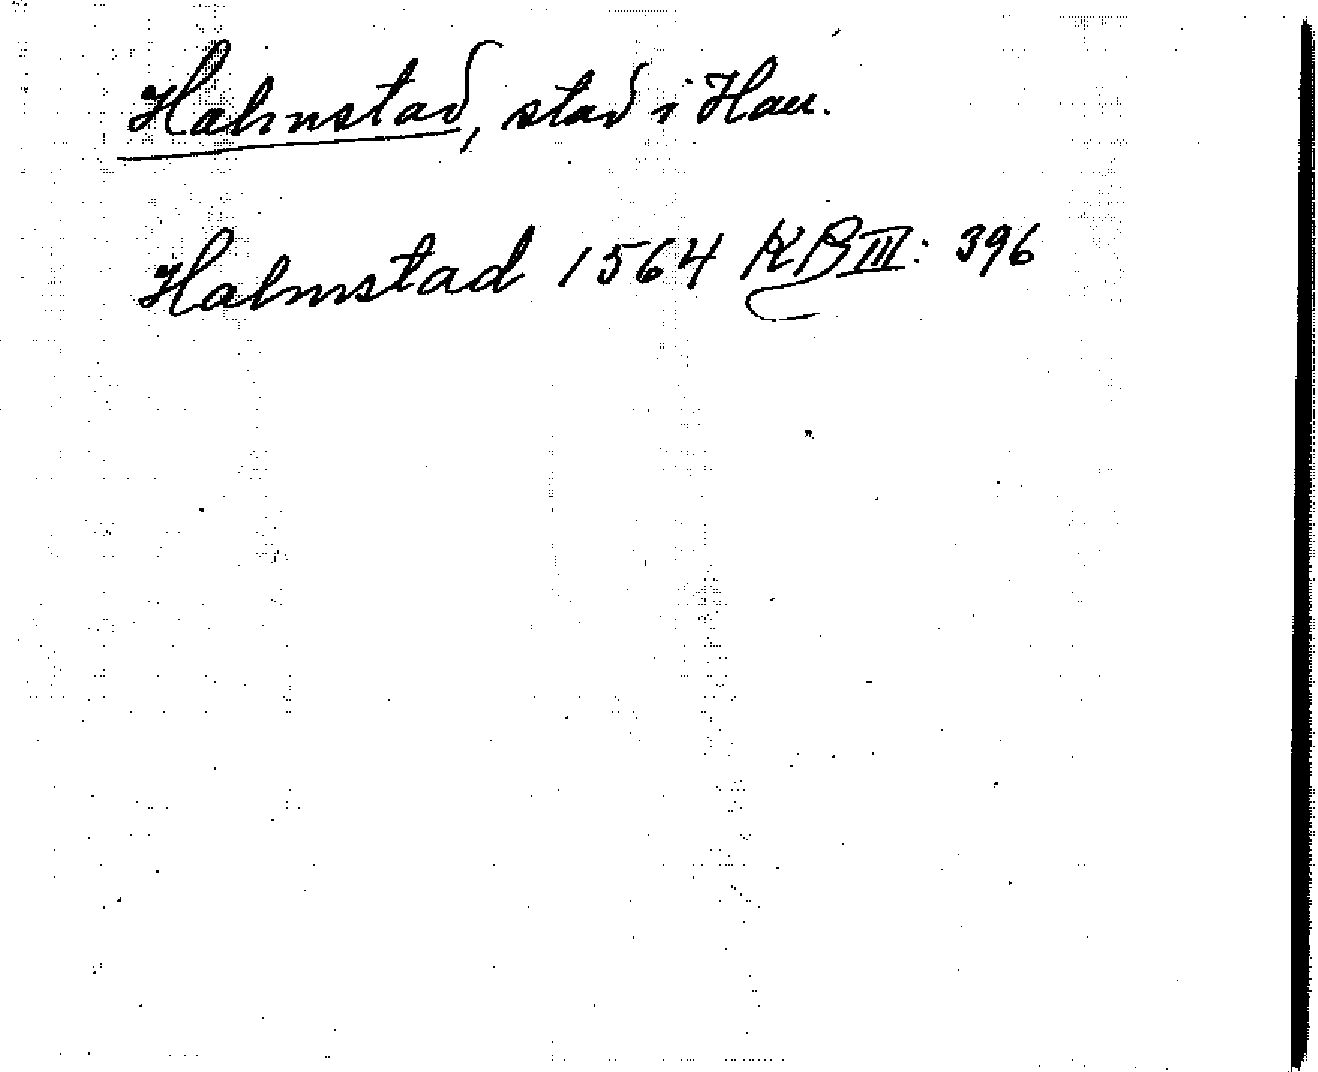 Halmstad, stad i Hall.
Halmstad 1564 KB III: 396